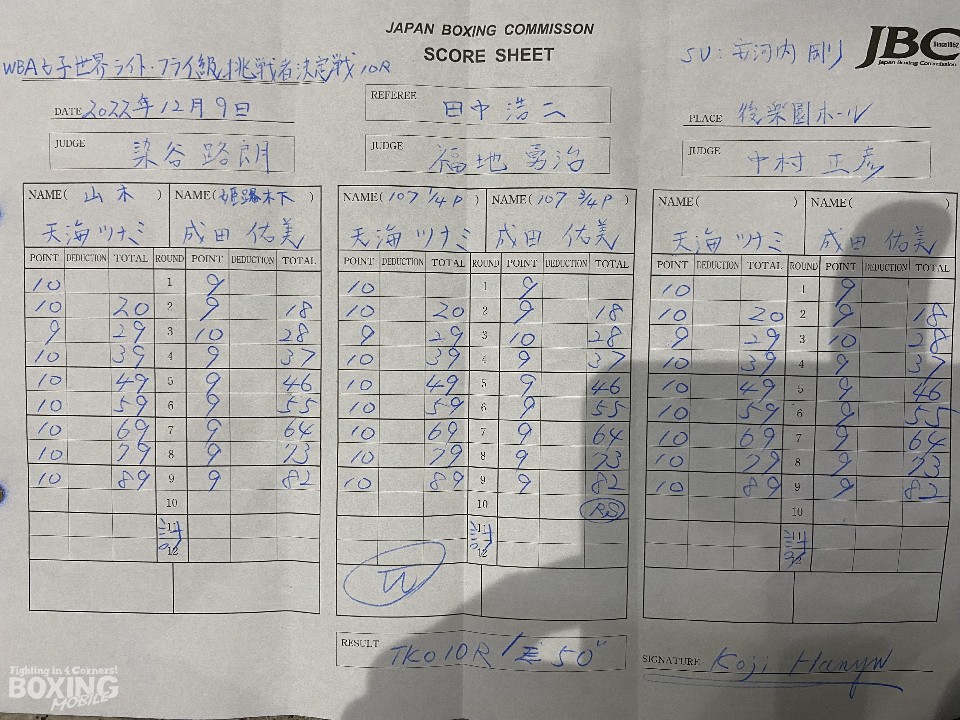 JAPAN BOXING COMMISSON
SCORE SHEET
JBC
Since1952
Japan Boxing Commission
SU:安河内 剛
WBA女子世界ライト・フライ級挑戦者決定戦10R
DATE 2022年12月9日
REFEREE 田中 浩二
PLACE 後楽園ホール
JUDGE 染谷 路朗
JUDGE 福地 勇治
JUDGE 中村 正彦
NAME( 山木 ) NAME( 姫路木下 ) NAME( 107 1/4 P ) NAME( 107 3/4 P ) NAME( ) NAME( )
天海 ツナミ 成田 佑美 天海 ツナミ 成田 佑美 天海 ツナミ 成田 佑美
POINT DEDUCTION TOTAL ROUND POINT DEDUCTION TOTAL POINT DEDUCTION TOTAL ROUND POINT DEDUCTION TOTAL POINT DEDUCTION TOTAL ROUND POINT DEDUCTION TOTAL
10 1 9 10 1 9 10 1 9
10 20 2 9 18 10 20 2 9 18 10 20 2 9 18
9 29 3 10 28 9 29 3 10 28 9 29 3 10 28
10 39 4 9 37 10 39 4 9 37 10 39 4 9 37
10 49 5 9 46 10 49 5 9 46 10 49 5 9 46
10 59 6 9 55 10 59 6 9 55 10 59 6 9 55
10 69 7 9 64 10 69 7 9 64 10 69 7 9 64
10 79 8 9 73 10 79 8 9 73 10 79 8 9 73
10 89 9 9 82 10 89 9 9 82 10 89 9 9 82
10 10 RS 10
11 11 11
12 12 12
W
RESULT TKO 10R 1' 50"
SIGNATURE Koji
Fighting in 4 Corners!
BOXING
MOBILE